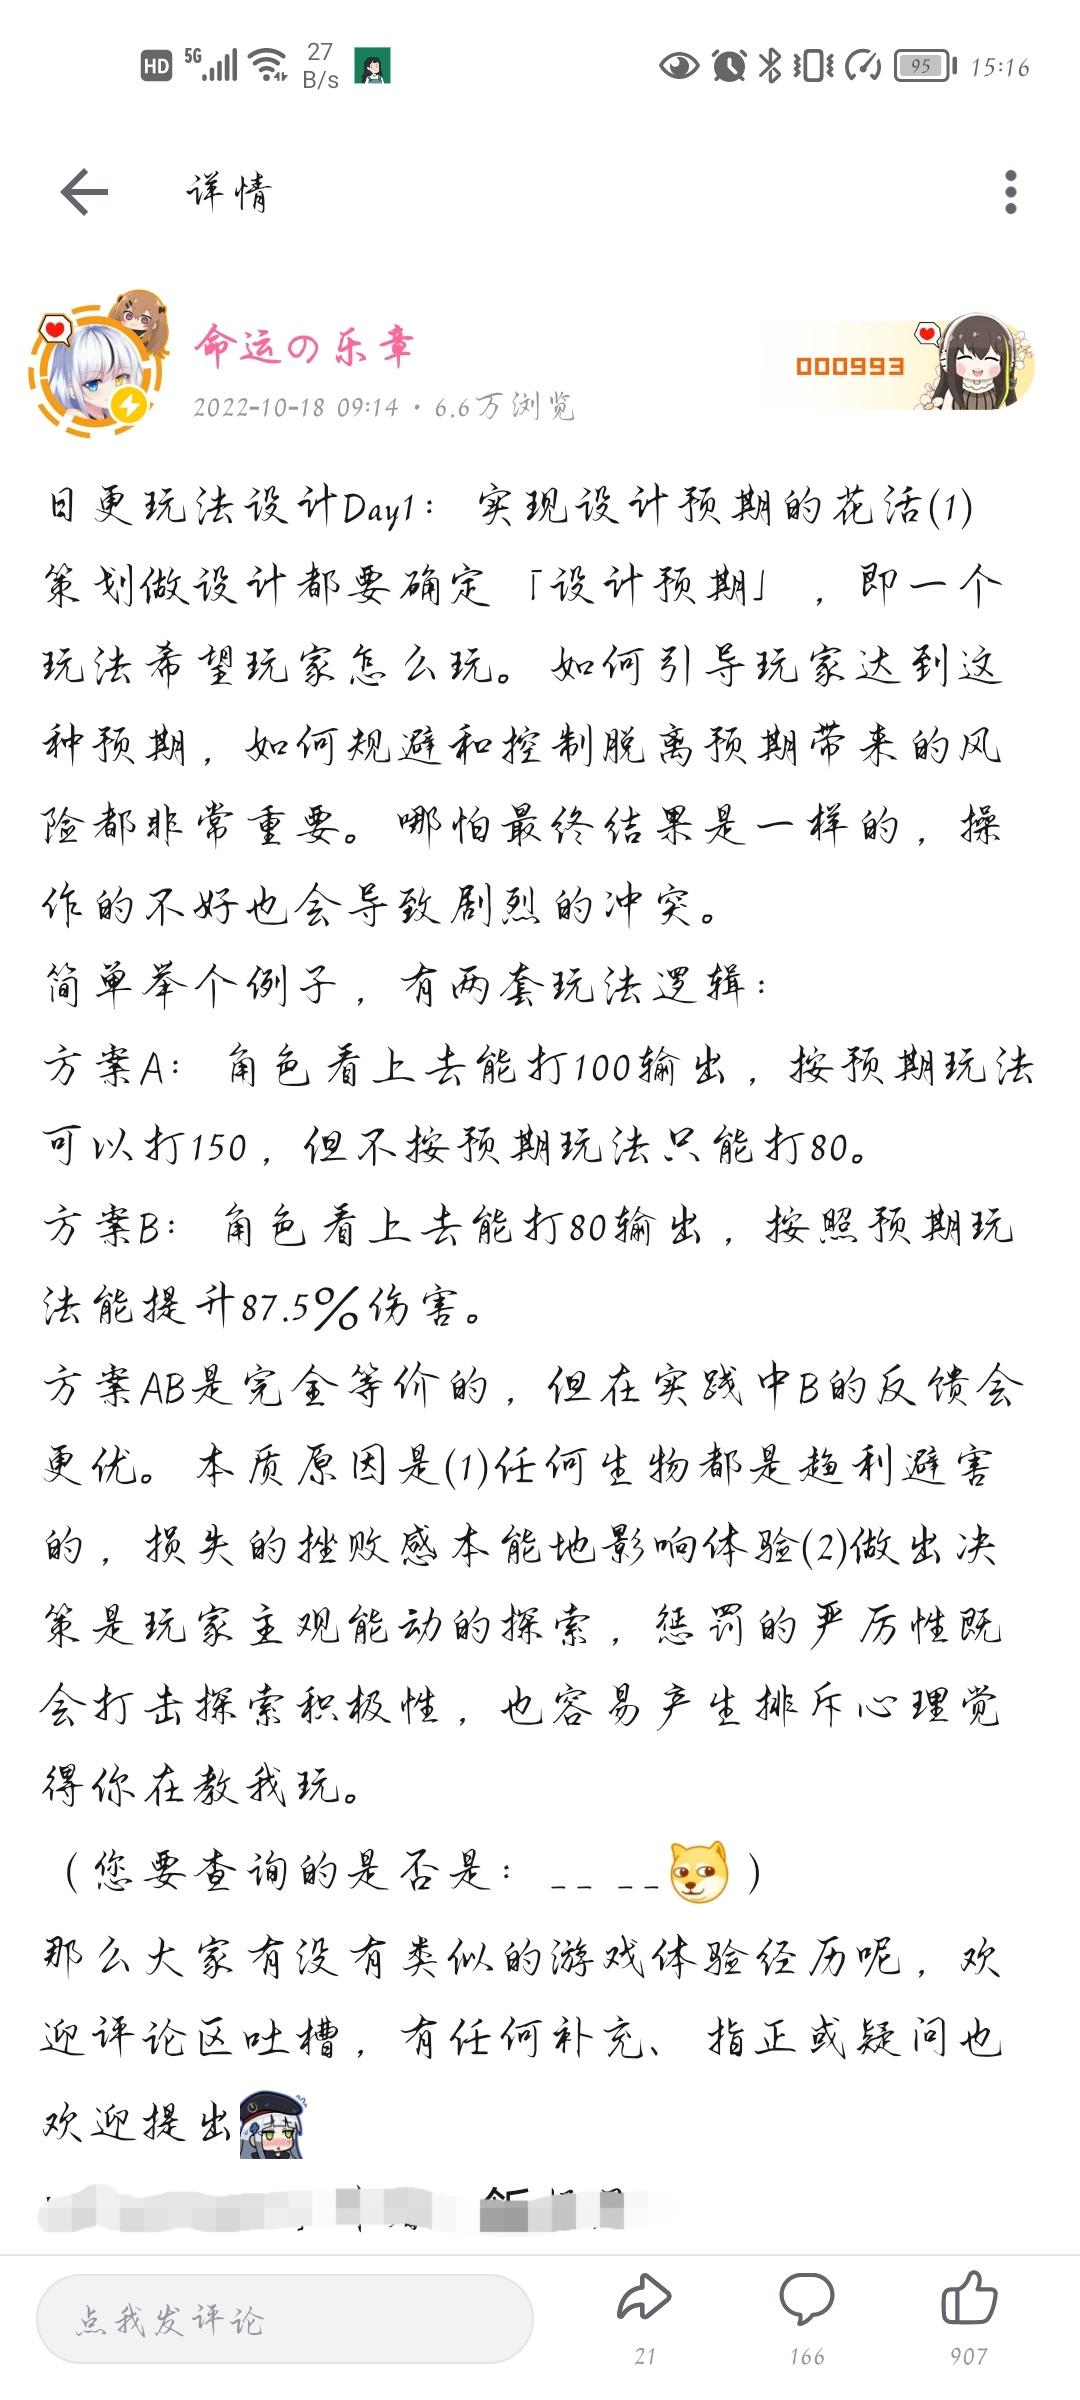 HD 5G 27 B/s 95 15:16
详情
命运の乐章
000993
2022-10-18 09:14 · 6.6万浏览
日更玩法设计Day1：实现设计预期的花活(1)
策划做设计都要确定「设计预期」，即一个
玩法希望玩家怎么玩。如何引导玩家达到这
种预期，如何规避和控制脱离预期带来的风
险都非常重要。哪怕最终结果是一样的，操
作的不好也会导致剧烈的冲突。
简单举个例子，有两套玩法逻辑：
方案A：角色看上去能打100输出，按预期玩法
可以打150，但不按预期玩法只能打80。
方案B：角色看上去能打80输出，按照预期玩
法能提升87.5%伤害。
方案AB是完全等价的，但在实践中B的反馈会
更优。本质原因是(1)任何生物都是趋利避害
的，损失的挫败感本能地影响体验(2)做出决
策是玩家主观能动的探索，惩罚的严厉性既
会打击探索积极性，也容易产生排斥心理觉
得你在教我玩。
（您要查询的是否是：__ __）
那么大家有没有类似的游戏体验经历呢，欢
迎评论区吐槽，有任何补充、指正或疑问也
欢迎提出
点我发评论
21 166 907